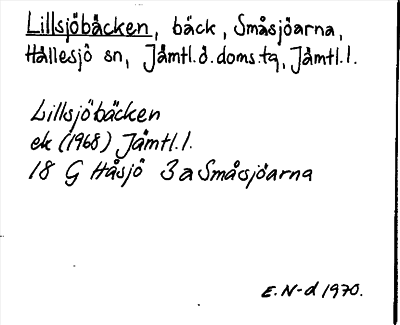 Lillsjöbäcken, bäck, Småsjöarna,
Hällesjö sn, Jämtl.ö.doms.tg, Jämtl.l.
Lillsjöbäcken
ek (1968) Jämtl.l.
18 G Håsjö 3a Småsjöarna
E.N-d 1970.